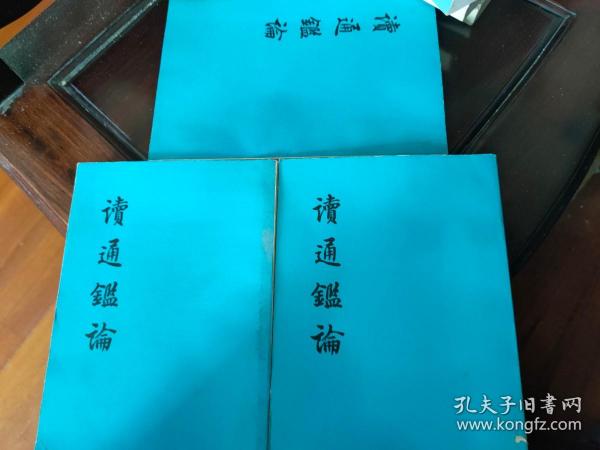 讀通鑑論
讀通鑑論
讀通鑑論
孔夫子旧书网
www.kongfz.com